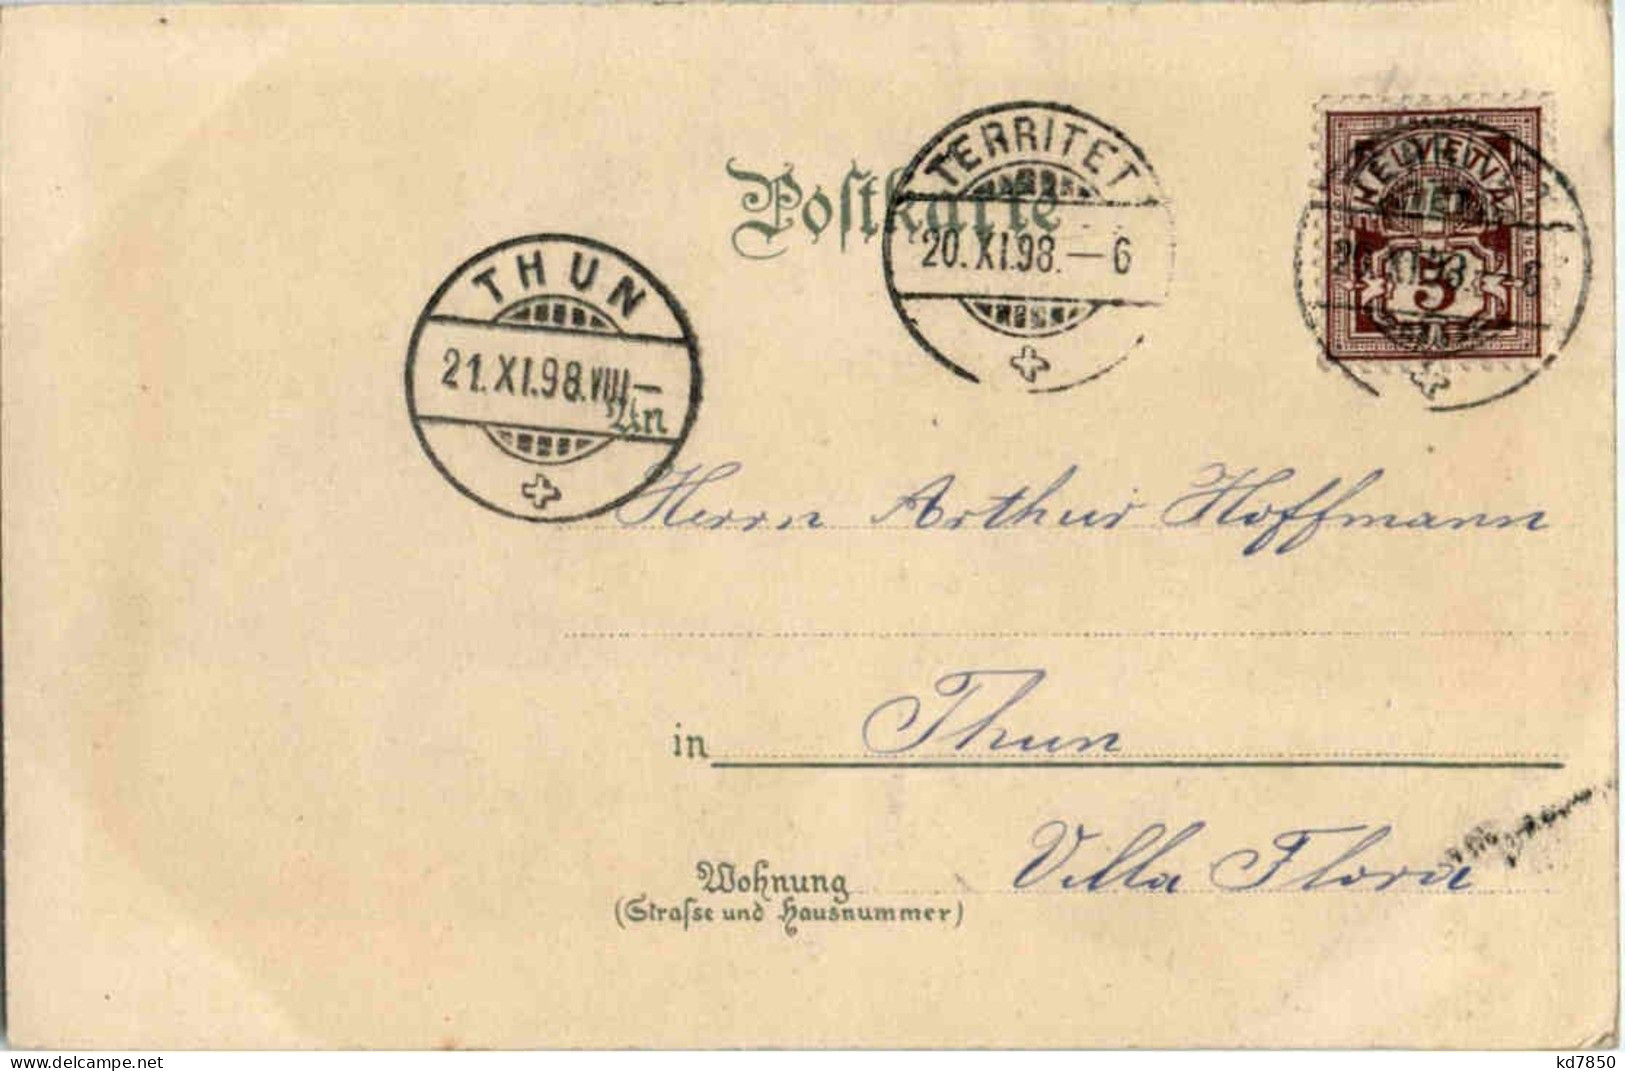 Postkarte
TERRITET
20.XI.98.—6
HELVETIA
5
THUN
21.XI.98.VIII—
An
Herrn Arthur Hoffmann
in Thun
Wohnung Villa Flora
(Strasse und Hausnummer)
delcampe.net
kd7850